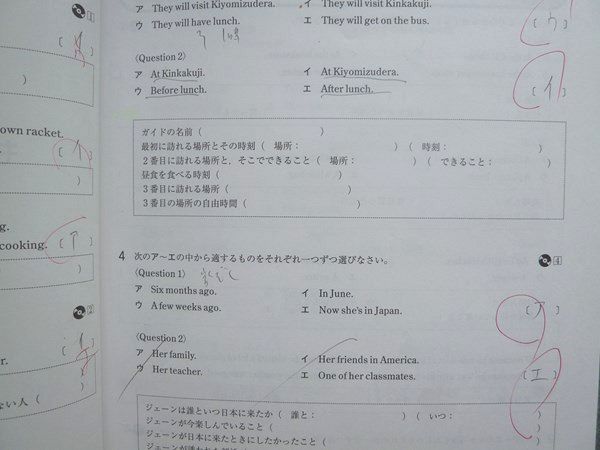 ア They will visit Kiyomizudera. イ They will visit Kinkakuji.
ウ They will have lunch. エ They will get on the bus.
〔ウ〕
〈Question 2〉
ア At Kinkakuji. イ At Kiyomizudera.
ウ Before lunch. エ After lunch.
〔イ〕
ガイドの名前（ ）
最初に訪れる場所とその時刻（場所： ）（時刻： ）
2番目に訪れる場所と，そこでできること（場所： ）（できること： ）
昼食を食べる時刻（ ）
3番目に訪れる場所（ ）
3番目の場所の自由時間（ ）
4 次のア～エの中から適するものをそれぞれ一つずつ選びなさい。 4
〈Question 1〉
ア Six months ago. イ In June.
ウ A few weeks ago. エ Now she's in Japan.
〔ア〕
〈Question 2〉
ア Her family. イ Her friends in America.
ウ Her teacher. エ One of her classmates.
〔エ〕
ジェーンは誰といつ日本に来たか（誰と： ）（いつ： ）
ジェーンが今楽しんでいること（ ）
ジェーンが日本に来たときにしたかったこと（ ）
1
own racket.
g.
cooking.
2
r.
ない人（